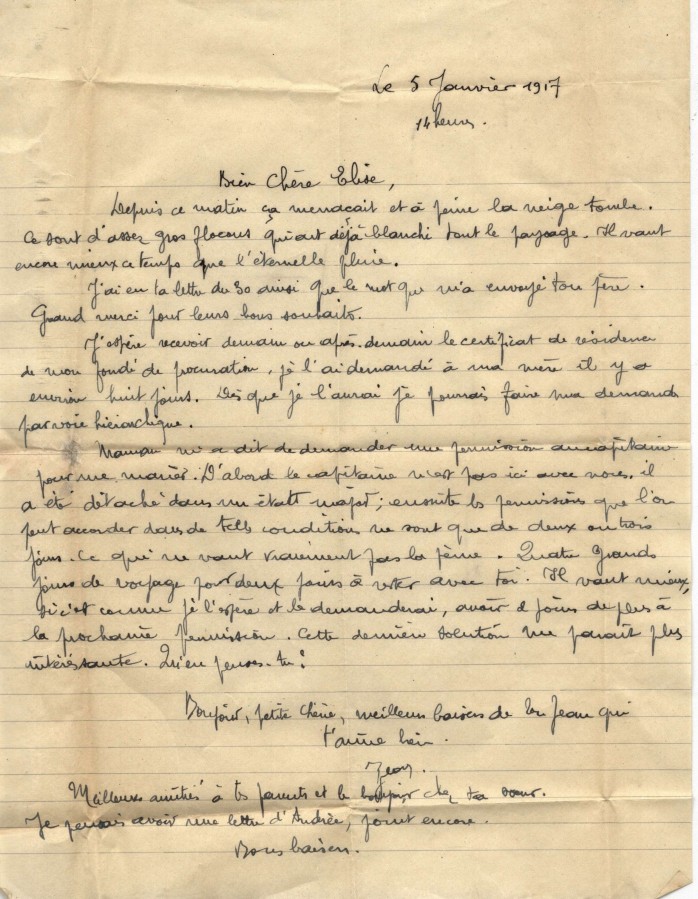 Le 5 Janvier 1917
14 heures.
Bien Chère Elise,
Depuis ce matin ça menacait et à peine la neige tombe.
Ce sont d'assez gros flocons qui ont déjà blanchi tout le paysage. Il vaut
encore mieux ce temps que l'éternelle pluie.
J'ai eu ta lettre du 30 ainsi que le mot que m'a envoyé ton père.
Grand merci pour leurs bons souhaits.
J'espère recevoir demain ou après-demain le certificat de résidence
de mon fondé de procuration, je l'ai demandé à ma mère il y a
environ huit jours. Dès que je l'aurai je pourrais faire ma demande
par voie hiérarchique.
Maman m'a dit de demander une permission au capitaine
pour me marier. D'abord le capitaine n'est pas ici avec nous, il
a été détaché dans un état major; ensuite les permissions que l'on
peut accorder dans de tells conditions ne sont que de deux ou trois
jours. Ce qui ne vaut vraiement pas la peine. Quatre grands
jours de voyage pour deux jours à rester avec toi. Il vaut mieux,
si c'est comme je l'espère et le demanderai, avoir 2 jours de plus à
la prochaine permission. Cette dernière solution me paraît plus
intéréssante. Qu'en penses-tu?
Bonjour, petite Chérie, meilleurs baisers de ton Jean qui
t'aime bien.
Jean.
Meilleures amitiés à tes parents et le bonjour chez ta sœur.
Je pensais avoir une lettre d'Andrée, point encore.
Bons baisers.